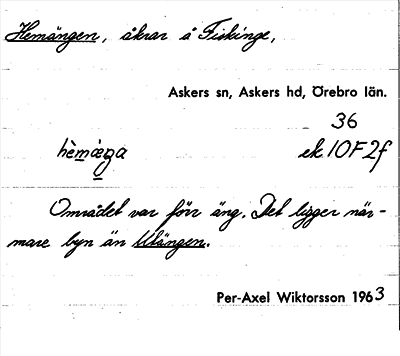 Hemängen, åkrar å Fiskinge,
Askers sn, Askers hd, Örebro län.
36
ek 10F2f
Området var förr äng. Det ligger när-
mare byn än Utängen.
Per-Axel Wiktorsson 1963